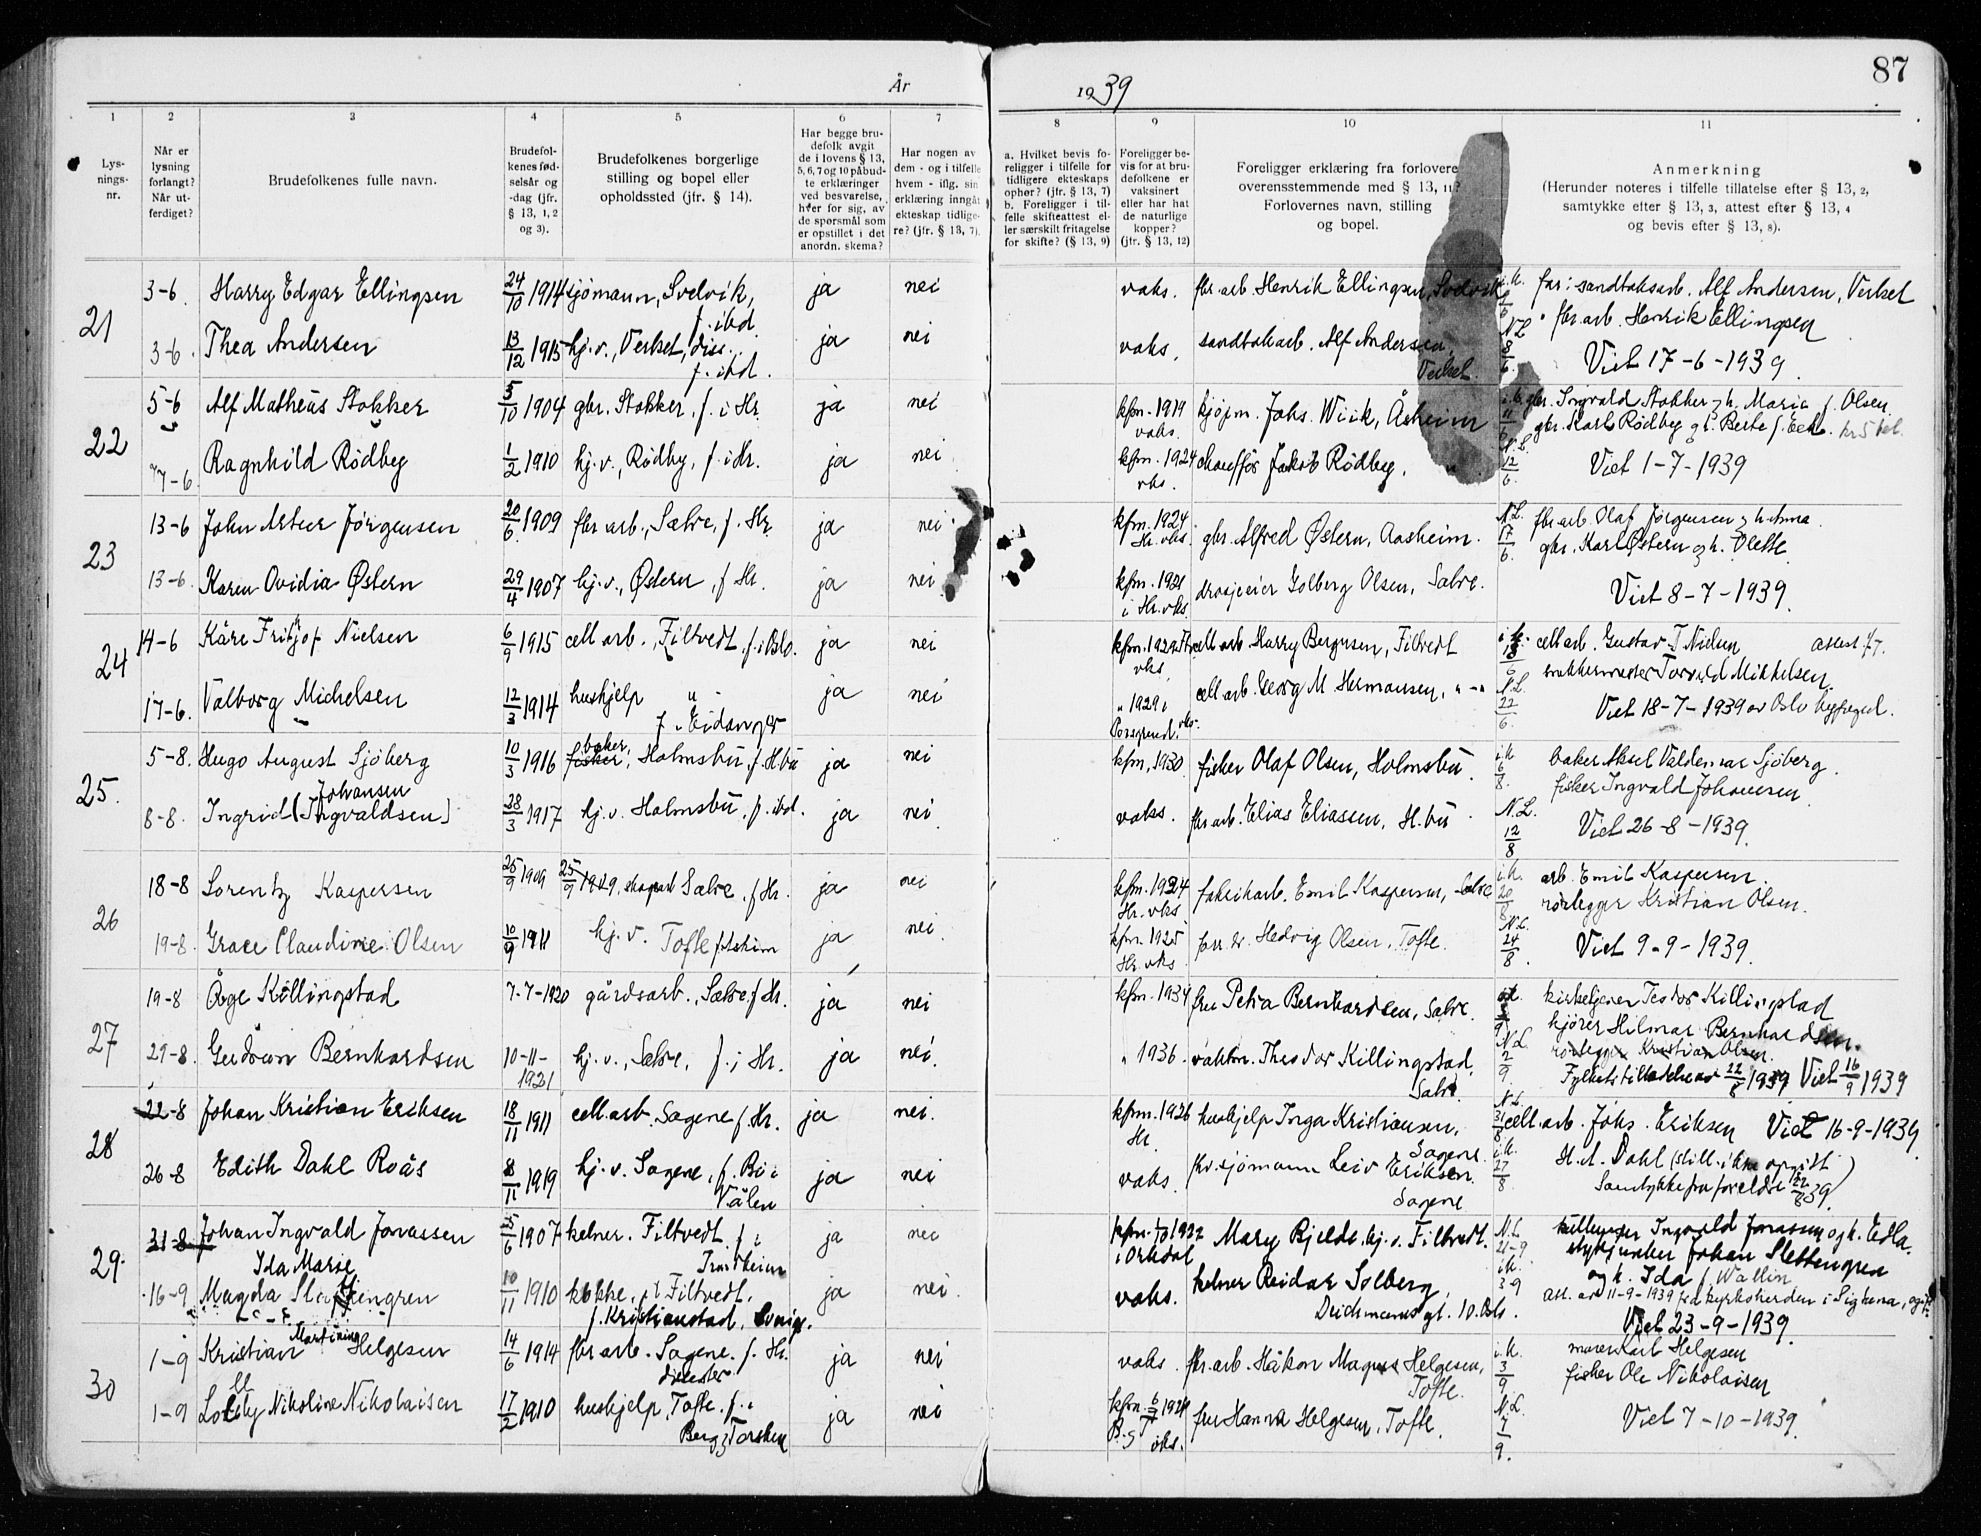 87
År
1939
1
2
3
4
5
6
7
8
9
10
11
Lys-
nings-
nr.
Når er
lysning
forlangt?
Når ut-
ferdiget?
Brudefolkenes fulle navn.
Brudefol-
kenes fød-
selsår og
-dag (jfr.
§ 13, 1, 2
og 3).
Brudefolkenes borgerlige
stilling og bopel eller
opholdssted (jfr. § 14).
Har begge bru-
defolk avgit
de i lovens § 13,
5, 6, 7 og 10 påbud-
te erklæringer
ved besvarelse,
hver for sig, av
de spørsmål som
er opstillet i det
anordn. skema?
Har nogen av
dem - og i tilfelle
hvem - iflg. sin
erklæring inngått
ekteskap tidlige-
re? (jfr. § 13, 7).
a. Hvilket bevis fo-
religger i tilfelle for
tidligere ekteskaps
ophør? (jfr. § 13, 7)
b. Foreligger i til-
felle skifteattest el-
ler særskilt fritagelse
for skifte? (§ 13, 9)
Foreligger be-
vis for at bru-
defolkene er
vaksinert
eller har hat
de naturlige
kopper?
(jfr. § 13, 12)
Foreligger erklæring fra forlovere
overensstemmende med § 13, 11?
Forlovernes navn, stilling
og bopel.
Anmerkning
(Herunder noteres i tilfelle tillatelse efter § 13, 2,
samtykke efter § 13, 3, attest efter § 13, 4
og bevis efter § 13, 8).
21
3-6. Harry Edgar Ellingsen 24/10 1914 sjømann, Svelvik, f. ibd. ja nei vaks. fbr. arb. Henrik Ellingsen, Svelvik
far: sandtaksarb. Alf Andersen, Verket
" fbr. arb. Henrik Ellingsen
3-6. Thea Andersen 13/12 1915 hj.v., Verket, diss. f. ibd. ja nei vaks. sandtakarb. Alf Andersen, Verket.
N.L. 8/6. Viet 17-6-1939.
22
5-6 Alf Matheus Stokker 5/10 1904 gbr. Stokker, f. i Hr. ja nei kfm. 1919 vaks. kjøpm. Johs. Wiik, Åsheim
gbr. Ingvald Stokker og h. Maria f. Olsen.
gbr. Karl Rødby og h. Berte f.
7-6 Ragnhild Rødby 1/2 1910 hj.v., Rødby, f. i Hr. ja nei kfm. 1924 vks. chauffør Jakob Rødby.
12/6. Viet 1-7-1939
23
13-6 John Artur Jørgensen 20/6 1909 fbr. arb., Sætre, f. Hr. ja nei kfm. 1924 Hr. vks. gbr. Alfred Østern, Aasheim.
N.L. 17/6. fbr. arb. Olaf Jørgensen og h. Anna.
gbr. Karl Østern og h. Olette.
13-6. Karen Ovidia Østern 29/4 1907 hj.v., Østern, f. Hr. ja nei kfm. 1921 i Hr. vks. drosjeeier Golberg Olsen, Sætre.
Viet 8-7-1939.
24
14-6 Kåre Fritjof Nielsen 6/9 1915 cell. arb., Filtvedt, f. i Oslo. ja nei vks. cell. arb. Harry Bergersen, Filtvedt
cell arb. Gustav T Nielsen attest 1/7.
Torvald Mikkelsen
17-6. Valborg Michelsen 12/3 1914 hushjelp " - f. Eidanger ja nei " 1929 i Porsgrund. vks. cell arb. Georg M. Hermansen, " - "
N.L. 22/6. Viet 18-7-1939 av Oslo byfogd.
25.
5-8. Hugo August Sjöberg 10/3 1916 baker, fisker, Holmsbu, f. H.bu ja nei kfm. 1930 fisker Olaf Olsen, Holmsbu.
i.k. 6/8. baker Aksel Valdemar Sjöberg.
fisker Ingvald Johansen.
8-8. Ingrid [Ingvaldsen] Johansen 28/3 1917 hj.v. Holmsbu, f. ibd. ja nei vaks. fbr. arb. Elias Eliassen, H.bu
N.L. 12/8 Viet 26-8-1939.
26
18-8 Lorentz Kaspersen 25/9 1909 25/9 1909, Sætre, f Hr. ja nei kfm. 1924 Hr. vks fabrikarb. Emil Kaspersen, Sætre
i.k. 20/8 arb. Emil Kaspersen.
rørlegger Kristian Olsen.
19-8. Grace Claudine Olsen 10/9 1911 hj. v. Tofte f. Askim ja nei. kfm. 1925 Hr. vks fru Hedvig Olsen, Tofte.
N.L. 24/8. Viet 9-9-1939.
27
19-8 Åge Killingstad 7-7-1920 gårdsarb., Sætre, f Hr. ja nei kfm. 1934 fru Petra Bernhardsen, Sætre.
kirketjener Teodor Killingstad
kjører Hilmar Bernhardsen.
29-8. Gudrun Bernhardsen 10-11-1921 hj. v., Sætre, f. i Hr. ja nei. " 1936. vaktm. Theodor Killingstad, Sætre.
N.L. 2/9. rørlegger Kristian Olsen.
Fylkets tillatelse av 22/8 1939 Viet 16/9 1939
28
22-8 Johan Kristian Eriksen 18/11 1911 cell. arb. Sagene f. Hr. ja nei. kfm. 1926 Hr. hushjelp Inga Kristiansen, Sagene.
N.L. 31/8 cell. arb. Johs. Eriksen Viet 16-9-1939.
26-8 Edith Dahl Roås 8/11 1919 hj. v. Sagene, f. Bø i Vålen ja nei vaks. fhv. sjømann Leiv Eriksen. Sagene
i.k. 27/8 H.A. Dahl (still. ikke opgitt)
Samtykke fra foreldre 39
29.
31-8 Johan Ingvald Jonassen 5/6 1907 kelner. Filtvedt f i Trondheim ja nei i Orkdal Mary Bjelde hj. v. Filtvedt.
N.L. 21-9 Ingvald Jonassen og h. Edla.
Johan Slettengren
og h. Ida f. Wallin
16-9 Magda Ida Marie Slettengren 10/11 1910 kokke, Filtvedt, f. Kristianstad, Sverige. ja nei. vaks. kelner Reidar Solberg, Deichmans gt. 10. Oslo.
i.k. 3-9 att. av 11-9-1939 fra kyrkoherden i Sigtuna,
Viet 23-9-1939.
30
1-9 Kristian Martinius Helgesen 14/6 1914 fbr arb. Sagene. f. Hr. ja nei vaks. fbr. arb. Håkon Magnus Helgesen, Tofte.
i.k. 3/9 Karl Helgesen
fisker Ole Nikolaisen
1-9 Nikoline Nikolaisen 17/2 1910 hushjelp, Tofte. f. i Berg, Torsken ja nei fru Hanna Helgesen, Tofte.
N.L. 7/9. Viet 7-10-1939.